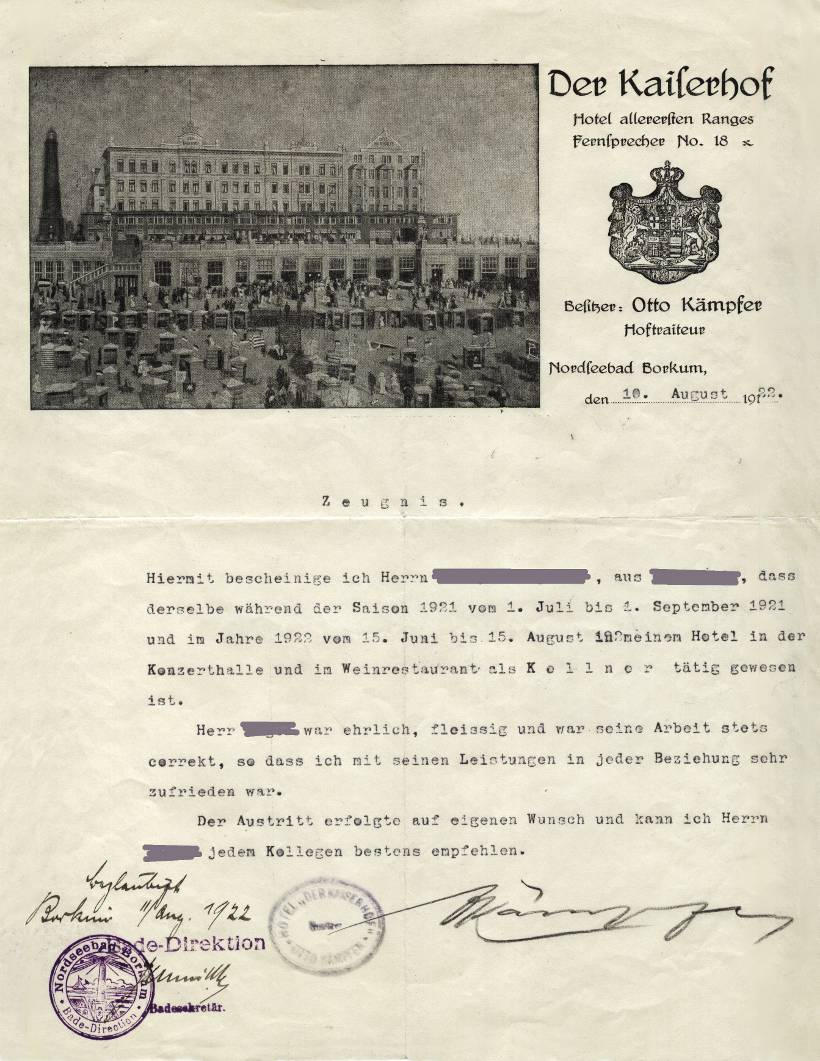 Der Kaiserhof
Hotel allerersten Ranges
Fernsprecher No. 18
Besitzer: Otto Kämpfer
Hoftraiteur
Nordseebad Borkum,
den 10. August 1922.
Zeugnis.
Hiermit bescheinige ich Herrn , aus , dass
derselbe während der Saison 1921 vom 1. Juli bis 1. September 1921
und im Jahre 1922 vom 15. Juni bis 15. August in meinem Hotel in der
Konzerthalle und im Weinrestaurant als Kellner tätig gewesen
ist.
Herr war ehrlich, fleissig und war seine Arbeit stets
correkt, so dass ich mit seinen Leistungen in jeder Beziehung sehr
zufrieden war.
Der Austritt erfolgte auf eigenen Wunsch und kann ich Herrn
jedem Kollegen bestens empfehlen.
beglaubigt
Borkum 11/Aug. 1922
Bade-Direktion
Badesekretär.
Nordseebad Borkum
Bade-Direction
HOTEL „DER KAISERHOF"
OTTO KÄMPFER
Kämpfer